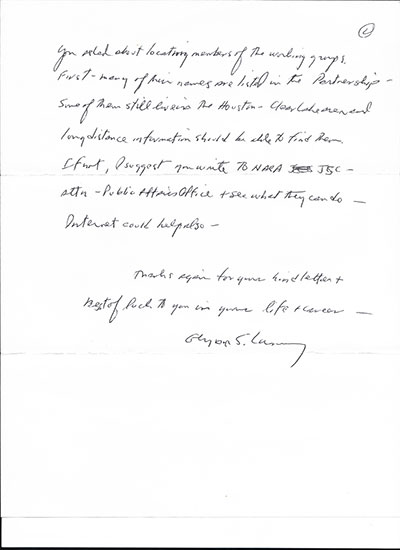 2
You asked about locating members of the working groups.
First - many of their names are listed in the Partnership -
Some of them still live in the Houston - Clear Lake area and
long distance information should be able to find them.
If not, I suggest you write to NASA JSC -
attn - Public Affairs Office + see what they can do —
Internet could help also -
Thanks again for your kind letter +
best of luck to you in your life + career —
Glynn S. Lunney